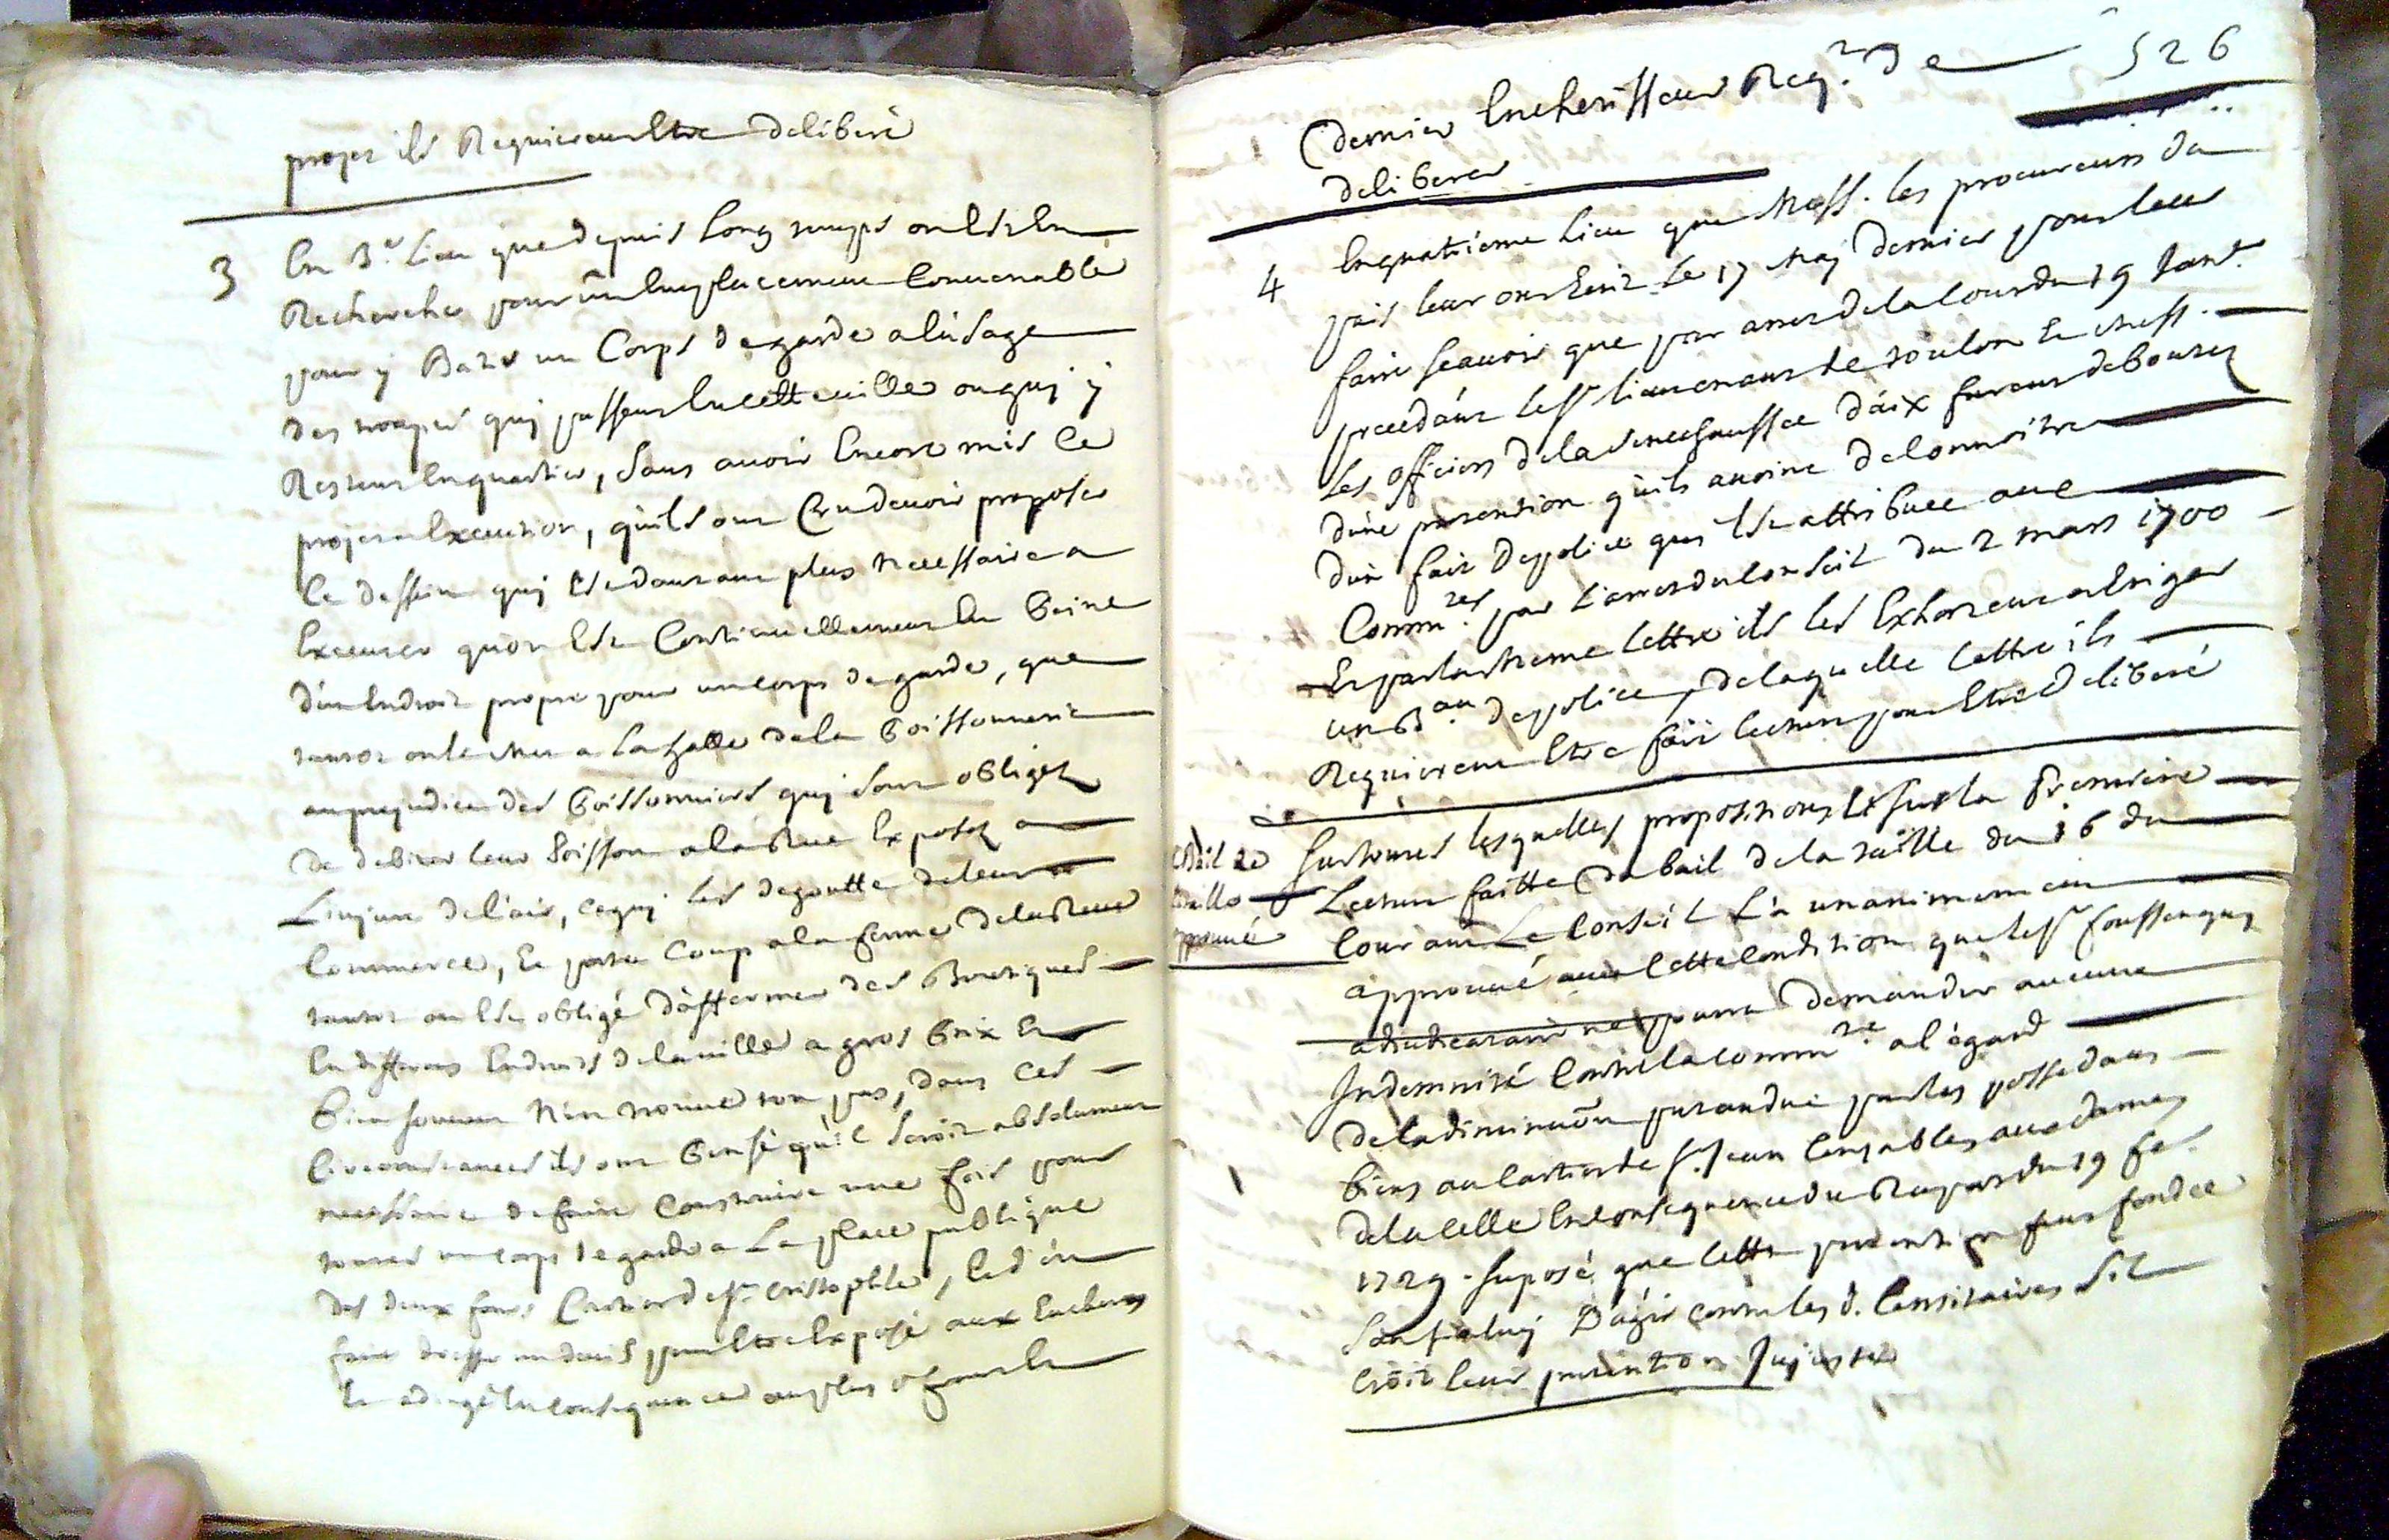 projet ils Requierent Etre deliberé
3 En 3.e Lieu que depuis Long temps on Est En
Recherche pour un Emplacement Convenable
pour y Batir un Corps de garde a l'usage
des troupes quj passent En cette ville ou quj y
Restent En quartier, sans avoir Encore mis le
projet a Execution, qu'ils ont Cru devoir proposer
Ce dessein quj Est d'autant plus Necessaire a
Executer qu'on Est Continuellement En Peine
d'un Endroit propre pour un corps de garde, que
tantot on le met a La halle de la Poissonnerie
au prejudice des Poissonniers quj sont obliges
de debiter leur Poisson a la Rue Exposes a
L'injure de l'air, ce quj les degoutte de leur
Commerce, Et porte Coup a la ferme de la Reve
tantot on Est obligé d'affermer des Boutiques
En differens Endroits de la ville a gros Prix Et
Bien souvent N'en trouve ton pas, dans ces
Circonstances ils ont Pensé qu'il seroit absolument
necessaire de faire Construire une fois pour
toutes un corps de garde a La place publique
des deux fours Cartier de St. Cristophle, Et d'en
faire dresser un devis pour Etre Exposé aux Encheres
Et adiugé En consequence au plus offrant Et
526
dernier Encherisseur Req.t de
deliberer
4 En quatriéme Lieu que Mess. les procureurs du
païs leur ont Ecrit Le 17 Maj dernier pour leur
faire sçavoir que par arret de la Cour du 19 Janv.r
precedant Le Sr. lieutenant de toulon Et Mess.
Les officiers de la Senechaussée d'aix furent deboutez
d'une pretention qu'ils avoint de Connoitre
du fait de police qui Est attribuée aux
Comm.tes par L'arret du Conseil du 2 mars 1700
Et par la meme Lettre ils les Exhortent a Eriger
un B.au de police, de laquelle Lettre ils
Requierent Etre fait lecture pour Etre deliberé
Bail de
taille
approuvé
Sur toutes lesquelles propositions Et sur la Premiere
Lecture faitte du bail de la taille du 16 du
Courant Le Conseil L'a unanimement
approuvé avec Cette Condition que le Sr. foussenquy
adiudicataire ne pourra demander aucune
Indemnité Contre la Comm.té a l'égard
de la diminuõn pretendue par les possedans
biens au Cartier de St. Jean Censables aux dames
de la Celle En consequence du Raport du 19 fe.
1729. Suposé que Cette pretention fut fondée
Sauf a luj D'agir contre les d. Censitaires S'il
Croit leur pretention Injuste